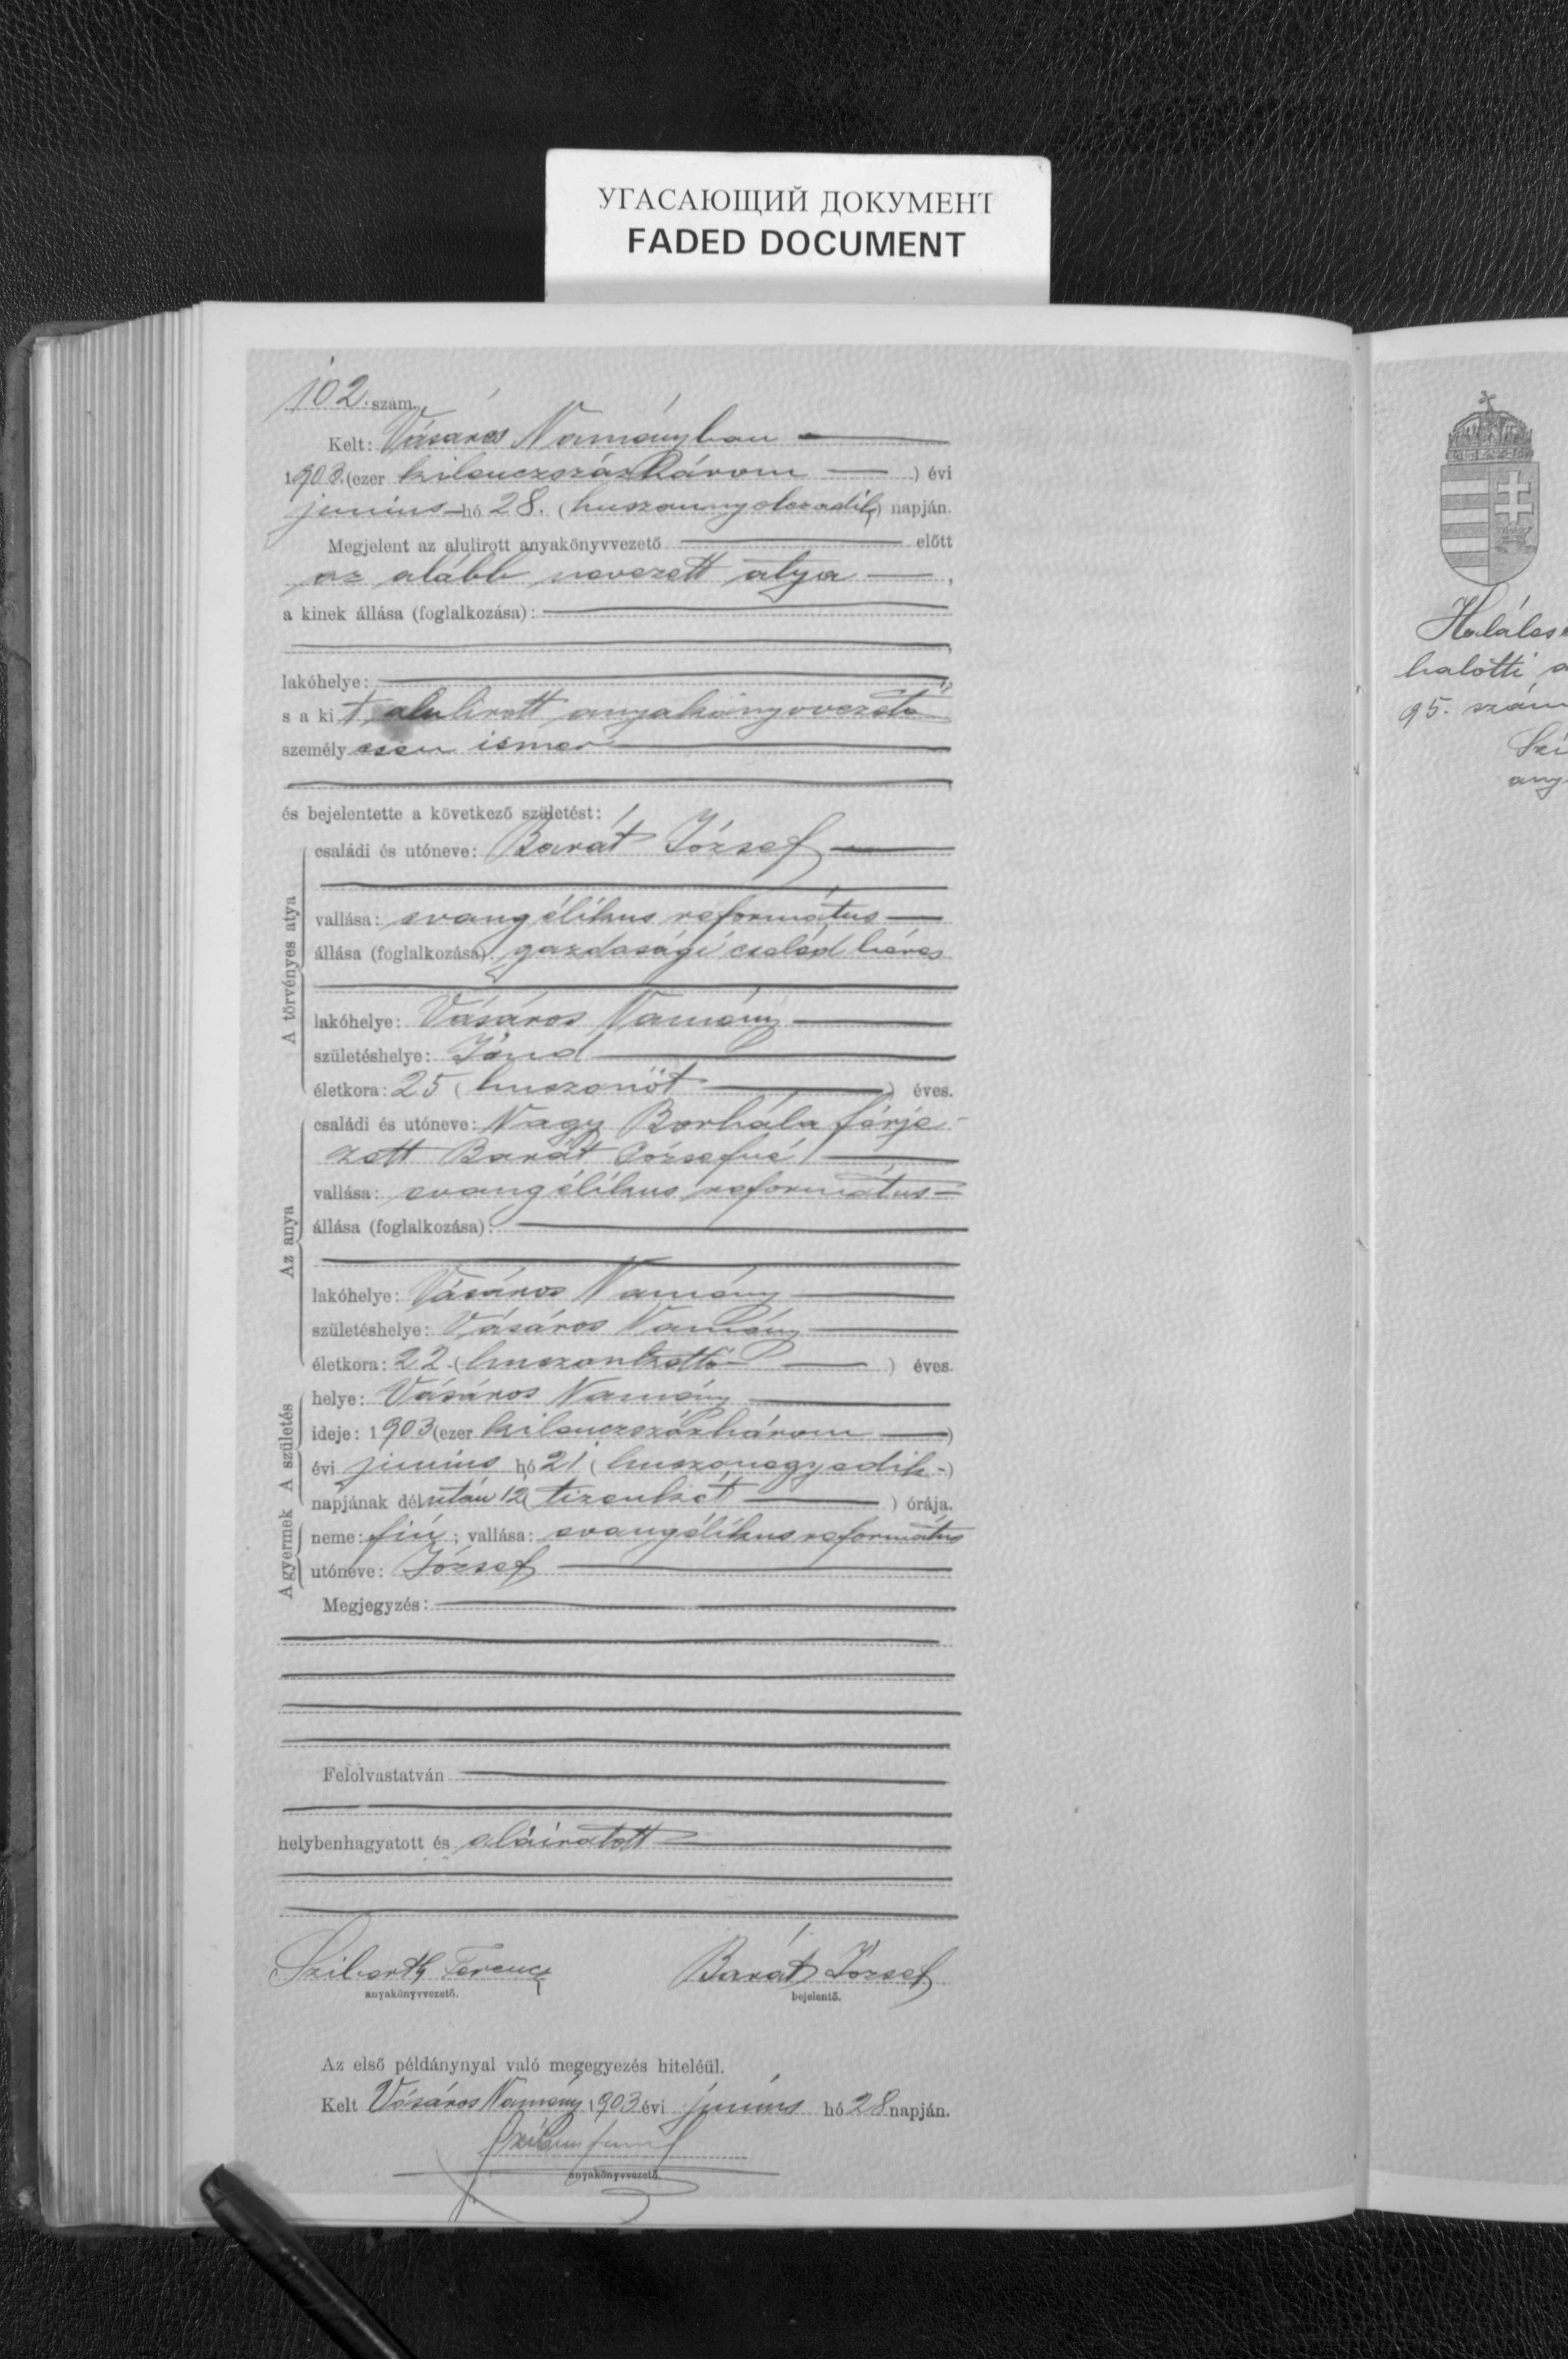 УГАСАЮЩИЙ ДОКУМЕНТ
FADED DOCUMENT
102. szám.
Kelt: Vásáros Naményban
1903. (ezer kilenczszázhárom ) évi
junius hó 28. (huszonnyolczadik) napján.
Megjelent az alulirott anyakönyvvezető előtt
az alább nevezett atya ,
a kinek állása (foglalkozása):
lakóhelye:
s a kit alulirott anyakönyvvezető
személyesen ismer
és bejelentette a következő születést:
A törvényes atya
családi és utóneve: Barát József
vallása: evangélikus református
állása (foglalkozása): gazdasági cseléd béres
lakóhelye: Vásáros Namény
születéshelye: Jánd
életkora: 25 (huszonöt ) éves.
Az anya
családi és utóneve: Nagy Borbála férje-
zett Barát Józsefné
vallása: evangélikus református
állása (foglalkozása):
lakóhelye: Vásáros Namény
születéshelye: Vásáros Namény
életkora: 22 (huszonkettő ) éves.
A születés
helye: Vásáros Namény
ideje: 1903 (ezer kilenczszázhárom )
évi junius hó 21 (huszonegyedik)
napjának délután 12 (tizenkét ) órája.
A gyermek
neme: fiú; vallása: evangélikus református
utóneve: József
Megjegyzés:
Felolvastatván
helybenhagyatott és aláiratott
Sziberth Ferencz
anyakönyvvezető.
Barát József
bejelentő.
Az első példánynyal való megegyezés hiteléül.
Kelt Vásáros Namény 1903 évi junius hó 28 napján.
anyakönyvvezető.
halotti
95. szám